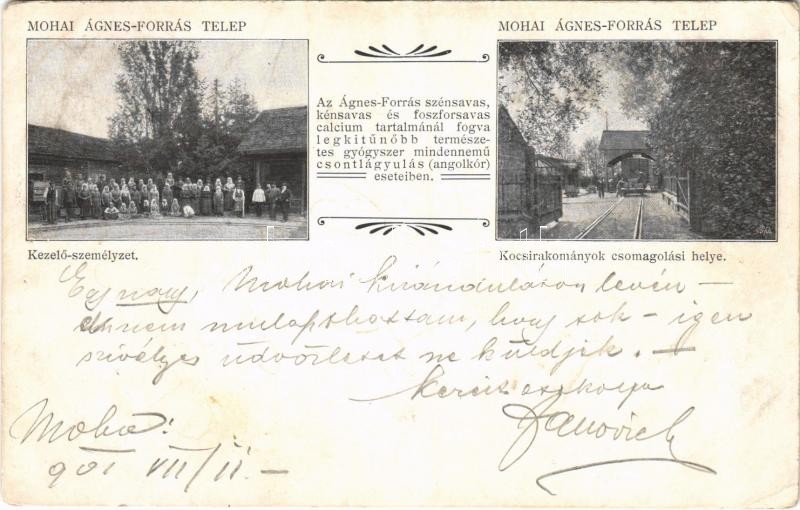 MOHAI ÁGNES-FORRÁS TELEP
MOHAI ÁGNES-FORRÁS TELEP
Az Ágnes-Forrás szénsavas,
kénsavas és foszforsavas
calcium tartalmánál fogva
legkitűnőbb természe-
tes gyógyszer mindennemű
csontlágyulás (angolkór)
eseteiben.
Kezelő-személyzet.
Kocsirakományok csomagolási helye.
Egy nagy, Mohai kiránduláson levén —
el nem mulaszthattam, hogy sok - igen
szívélyes üdvözletet ne küldjek. —
Janovich
Moha:
901 VII/11. —